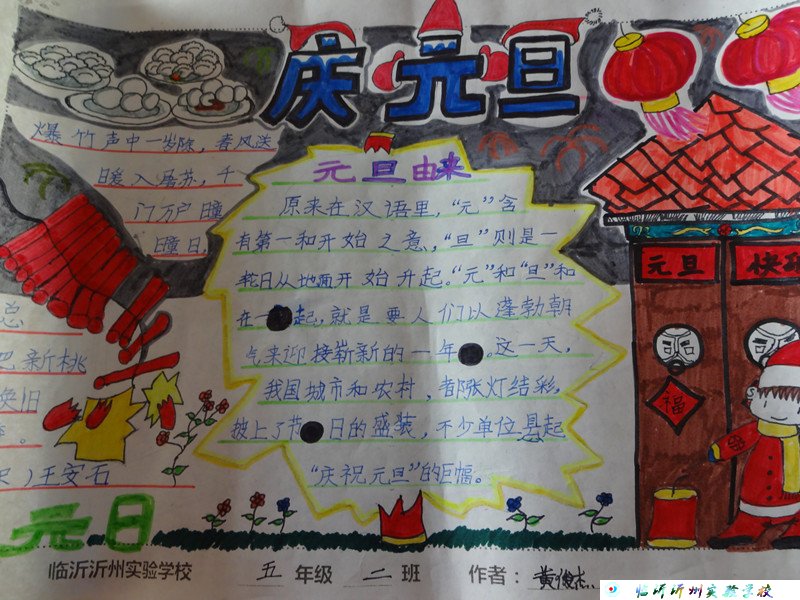 庆元旦
爆竹声中一岁除，春风送
暖入屠苏，千
门万户曈
曈日，
总
把新桃
换旧
王安石
元日
元旦由来
原来在汉语里，“元”含
有第一和开始之意，“旦”则是一
轮日从地面开始升起。“元”和“旦”和
在一起，就是要人们以蓬勃朝
气来迎接崭新的一年。这一天，
我国城市和农村，都张灯结彩，
披上了节日的盛装，不少单位悬起
“庆祝元旦”的巨幅。
元旦
快
福
临沂沂州实验学校 五年级二班 作者：黄俊杰
临沂沂州实验学校